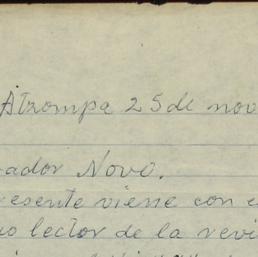 Atzompa 25 de nov
ador Novo.
resente viene con e
o lector de la revi